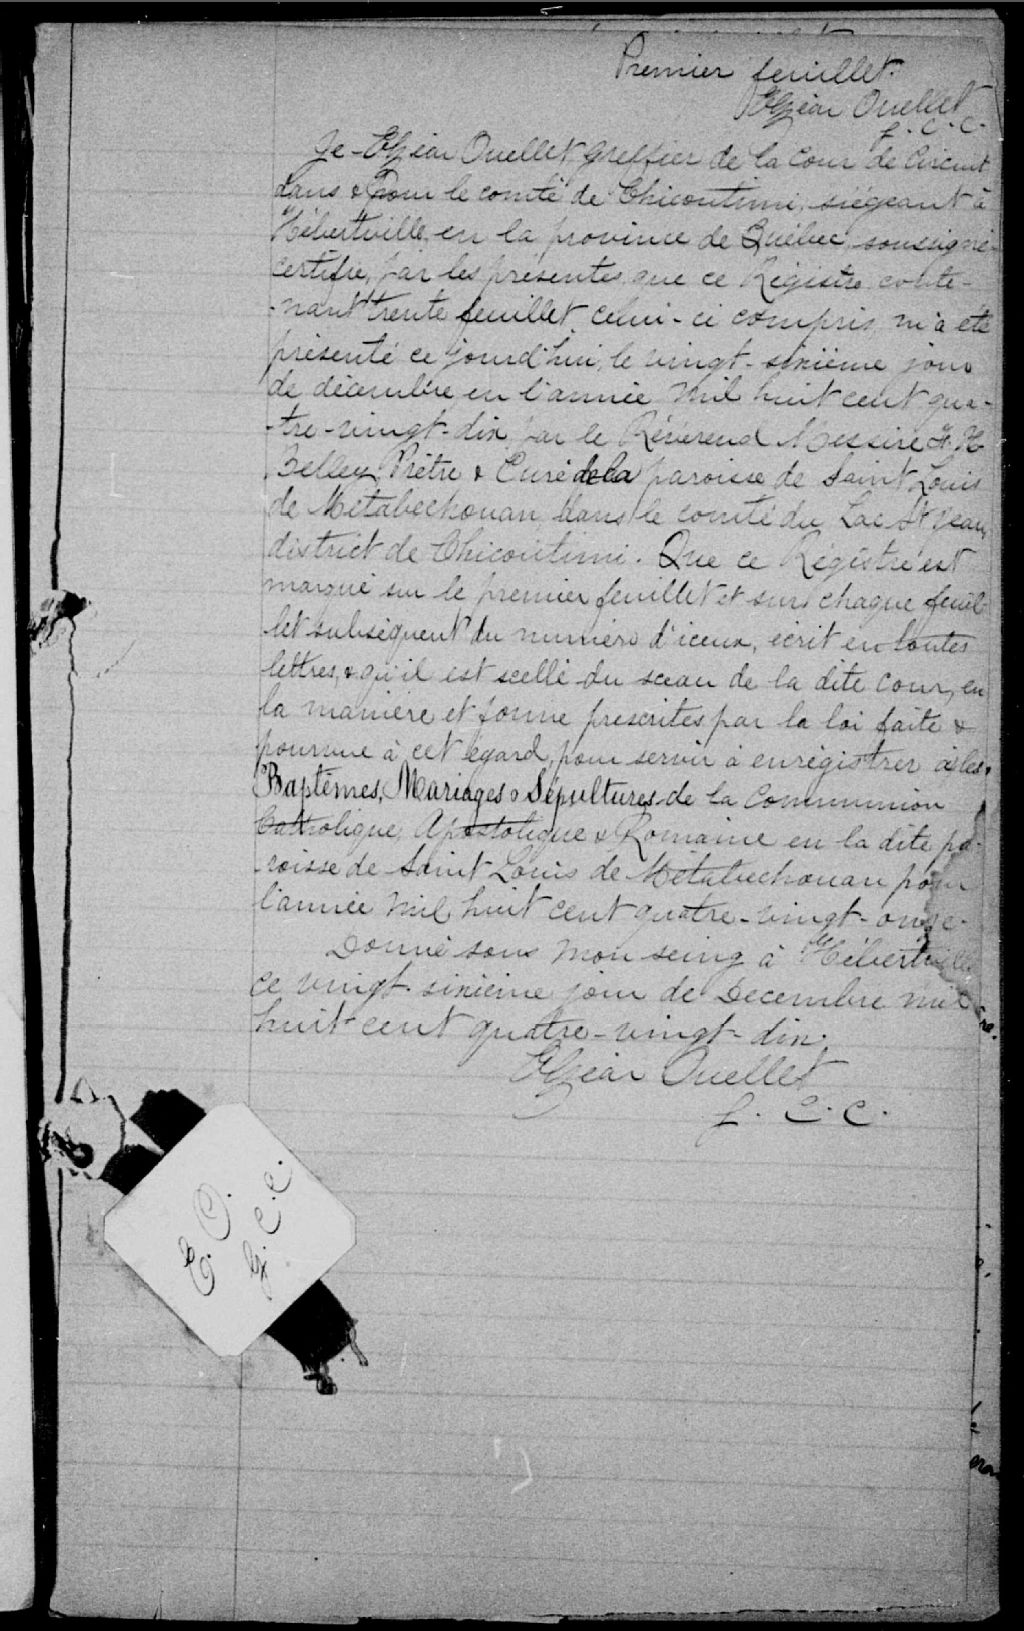 Premier feuillet.
Elzéar Ouellet
g. c. c.
Je Elzéar Ouellet Greffier de la Cour de Circuit
dans & Pour le comté de Chicoutimi, siégeant à
Hébertville, en la province de Québec, soussigné
certifie, par les présentes, que ce Régistre conte-
-nant trente feuillet, celui-ci compris, m'a été
présenté ce jourd'hui, le vingt-sixième jour
de décembre en l'année mil huit cent qua-
-tre-vingt-dix par le Révérend Messire H. H
Belley Prêtre & Curé de la paroisse de Saint Louis
de Métabechouan, dans le comté du Lac St Jean,
district de Chicoutimi. Que ce Régistre est
marqué sur le premier feuillet et sur chaque feuil-
let subséquent du numéro d'iceux, écrit en toutes
lettres, & qu'il est scellé du sceau de la dite cour, en
la manière et forme prescrites par la loi faite &
pourvue à cet égard, pour servir à enrégistrer les
Baptêmes, Mariages & Sépultures de la Communion
Catholique, Apostolique & Romaine en la dite pa-
-roisse de Saint Louis de Métabechouan pour
l'année mil huit cent quatre-vingt-onze.
Donné sous mon seing à Hébertville
ce vingt-sixième jour de Décembre mil
huit cent quatre-vingt-dix.
Elzéar Ouellet
g. C. C.
E. O.
G. C. C.